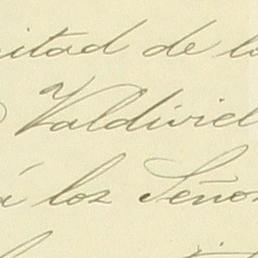 mitad de la
Valdiviel
á los Señor